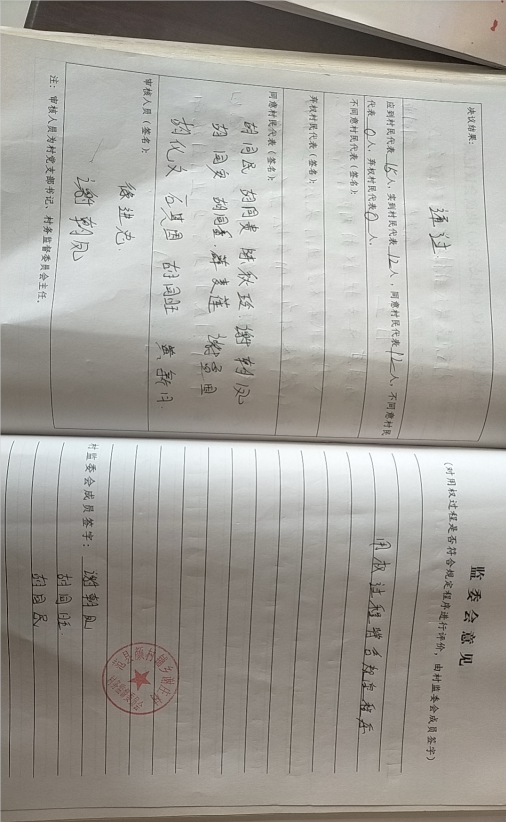 决议结果：
通过
应到村民代表15人，实到村民代表12人，同意村民代表12人，不同意村民
代表0人，弃权村民代表0人。
不同意村民代表（签名）：
弃权村民代表（签名）：
同意村民代表（签名）：
胡同民 胡同贵 陈秋玲 谢朝凤
胡国安 胡同奎 苏麦莲
胡化文 胡同旺 黄新月
审核人员（签名）：
徐进忠
谢朝凤
注：审核人员为村党支部书记、村务监督委员会主任。
监委会意见
（对用权过程是否符合规定程序进行评价，由村监委会成员签字）
用权过程符合规定程序
村监委会成员签字：谢朝凤
胡同旺
胡同民